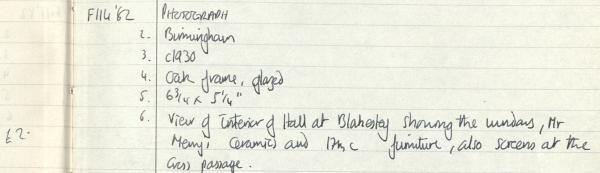 F114'82 PHOTOGRAPH
2. Birmingham
3. c1930
4. Oak frame, glazed
5. 6 3/4 x 5 1/4"
6. View of Interior of Hall at Blakesley showing the windows, Mr
£2. Merry, ceramics and 17th c furniture, also screens at the
Cross passage.